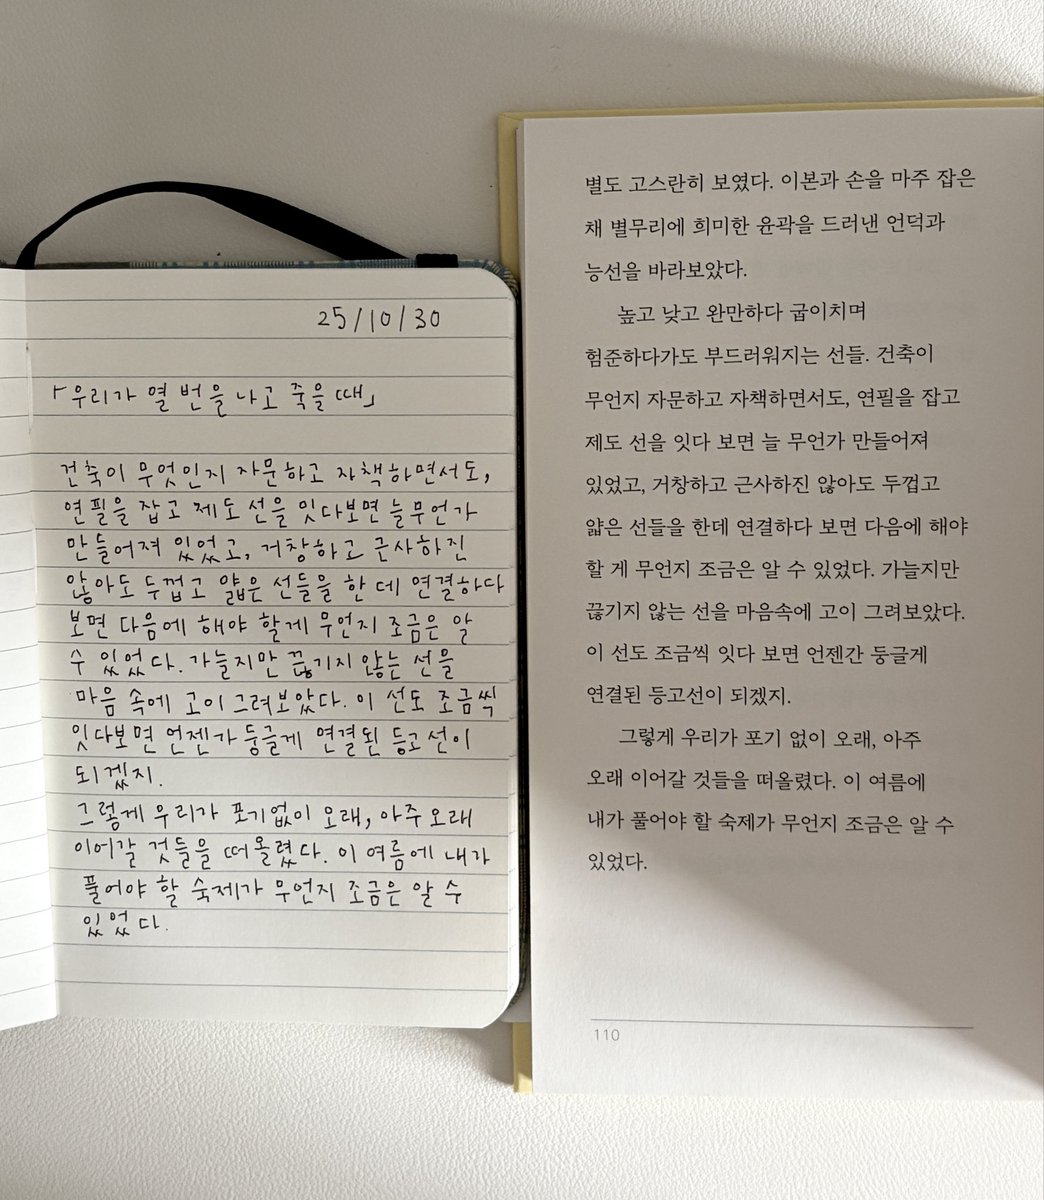 25/10/30
「우리가 열 번을 나고 죽을 때」
건축이 무엇인지 자문하고 자책하면서도,
연필을 잡고 제도 선을 잇다보면 늘 무언가
만들어져 있었고, 거창하고 근사하진
않아도 두껍고 얇은 선들을 한 데 연결하다
보면 다음에 해야 할게 무언지 조금은 알
수 있었다. 가늘지만 끊기지 않는 선을
마음 속에 고이 그려보았다. 이 선도 조금씩
잇다보면 언젠가 둥글게 연결된 등고선이
되겠지.
그렇게 우리가 포기없이 오래, 아주 오래
이어갈 것들을 떠올렸다. 이 여름에 내가
풀어야 할 숙제가 무언지 조금은 알 수
있었다.
별도 고스란히 보였다. 이본과 손을 마주 잡은
채 별무리에 희미한 윤곽을 드러낸 언덕과
능선을 바라보았다.
높고 낮고 완만하다 굽이치며
험준하다가도 부드러워지는 선들. 건축이
무언지 자문하고 자책하면서도, 연필을 잡고
제도 선을 잇다 보면 늘 무언가 만들어져
있었고, 거창하고 근사하진 않아도 두껍고
얇은 선들을 한데 연결하다 보면 다음에 해야
할 게 무언지 조금은 알 수 있었다. 가늘지만
끊기지 않는 선을 마음속에 고이 그려보았다.
이 선도 조금씩 잇다 보면 언젠간 둥글게
연결된 등고선이 되겠지.
그렇게 우리가 포기 없이 오래, 아주
오래 이어갈 것들을 떠올렸다. 이 여름에
내가 풀어야 할 숙제가 무언지 조금은 알 수
있었다.
110